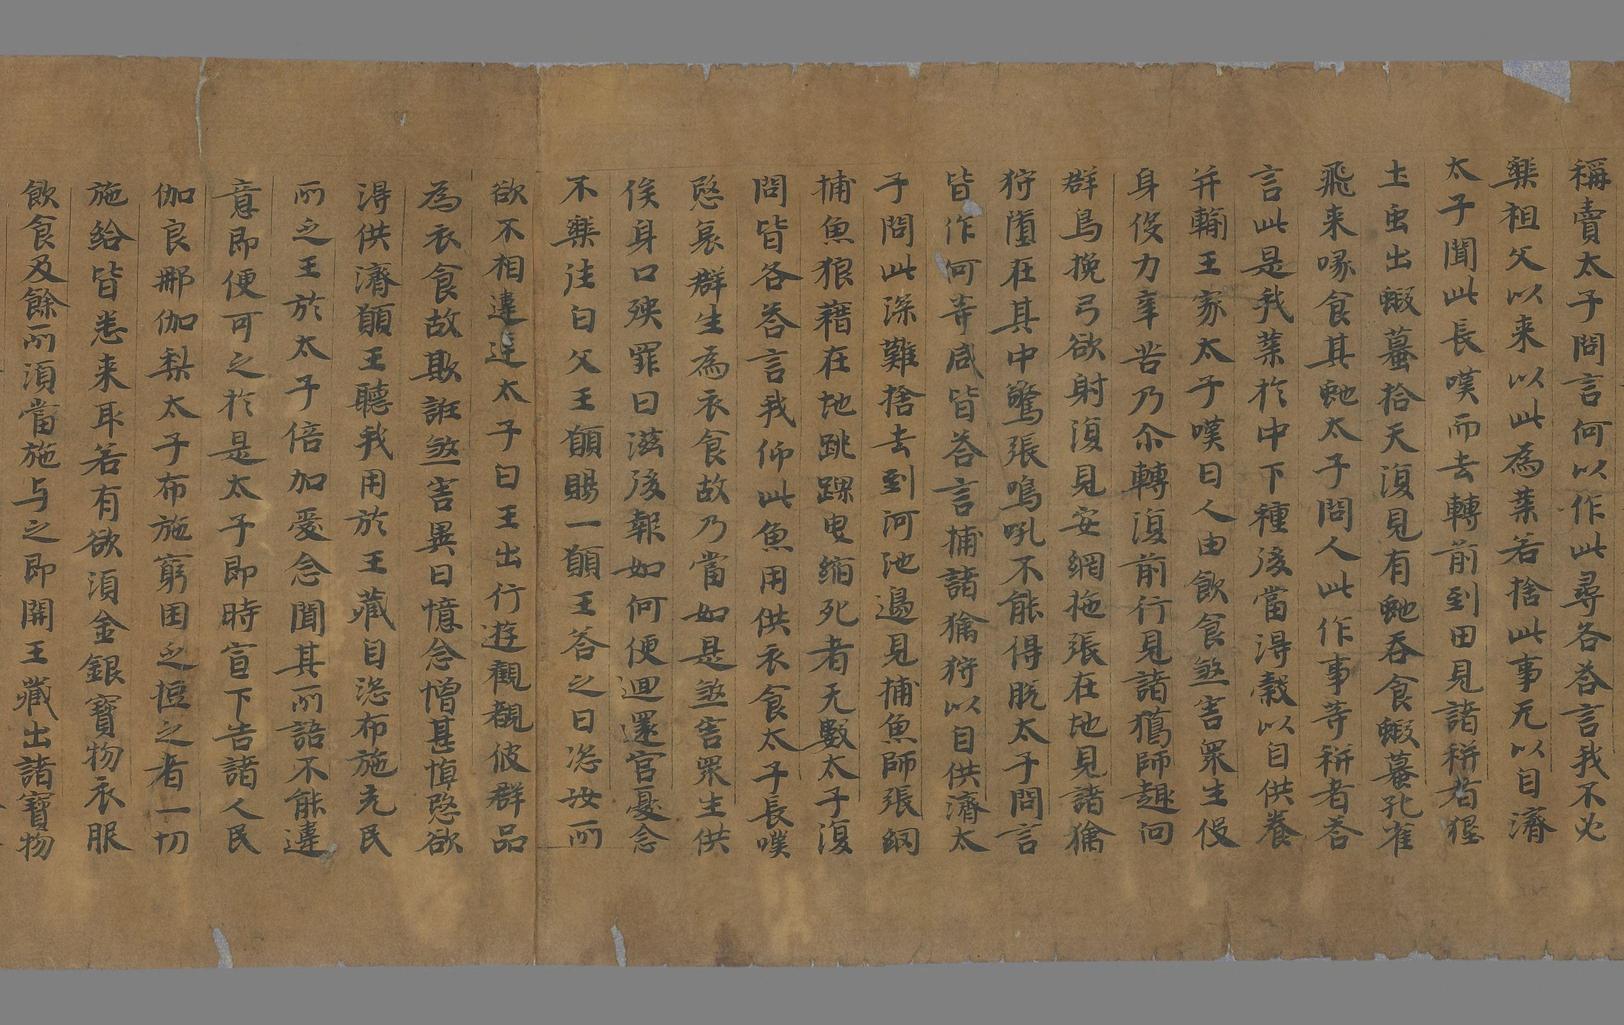 稱賣太子問言何以作此尋各荅言我不必
樂祖父以来以此為業若捨此事无以自濟
太子聞此長嘆而去轉前到田見諸耕者犁
土虫出蝦蟇拾天復見有虵吞食蝦蟇孔雀
飛来啄食其虵太子問人此作事等耕者荅
言此是我業於中下種後當得穀以自供養
并輸王家太子嘆曰人由飲食煞害眾生伇
身伇力辛苦乃尒轉復前行見諸獦師趣向
群鳥挽弓欲射復見安網拖張在地見諸禽
狩墮在其中驚張鳴吼不能得脫太子問言
皆作何等咸皆荅言捕諸禽狩以自供濟太
子問此深難捨去到河池邊見捕魚師張網
捕魚狼藉在地跳踝申縮死者无數太子復
問皆各荅言我仰此魚用供衣食太子長嘆
愍哀群生為衣食故乃當如是煞害眾生供
俟身口殃罪日滋後報如何便迴還官憂念
不樂往白父王願賜一願王荅之曰恣汝所
欲不相違逆太子曰王出行遊觀觀彼群品
為衣食故欺誑煞害異日憶念憎甚悼愍欲
得供濟願王聽我用於王藏自恣布施充民
所乏王於太子倍加愛念聞其所語不能違
意即便可之於是太子即時宣下告諸人民
伽良那伽梨太子布施窮困乏極之者一切
施給皆悉来取若有欲須金銀寶物衣服
飲食及餘所須當施与之即開王藏出諸寶物